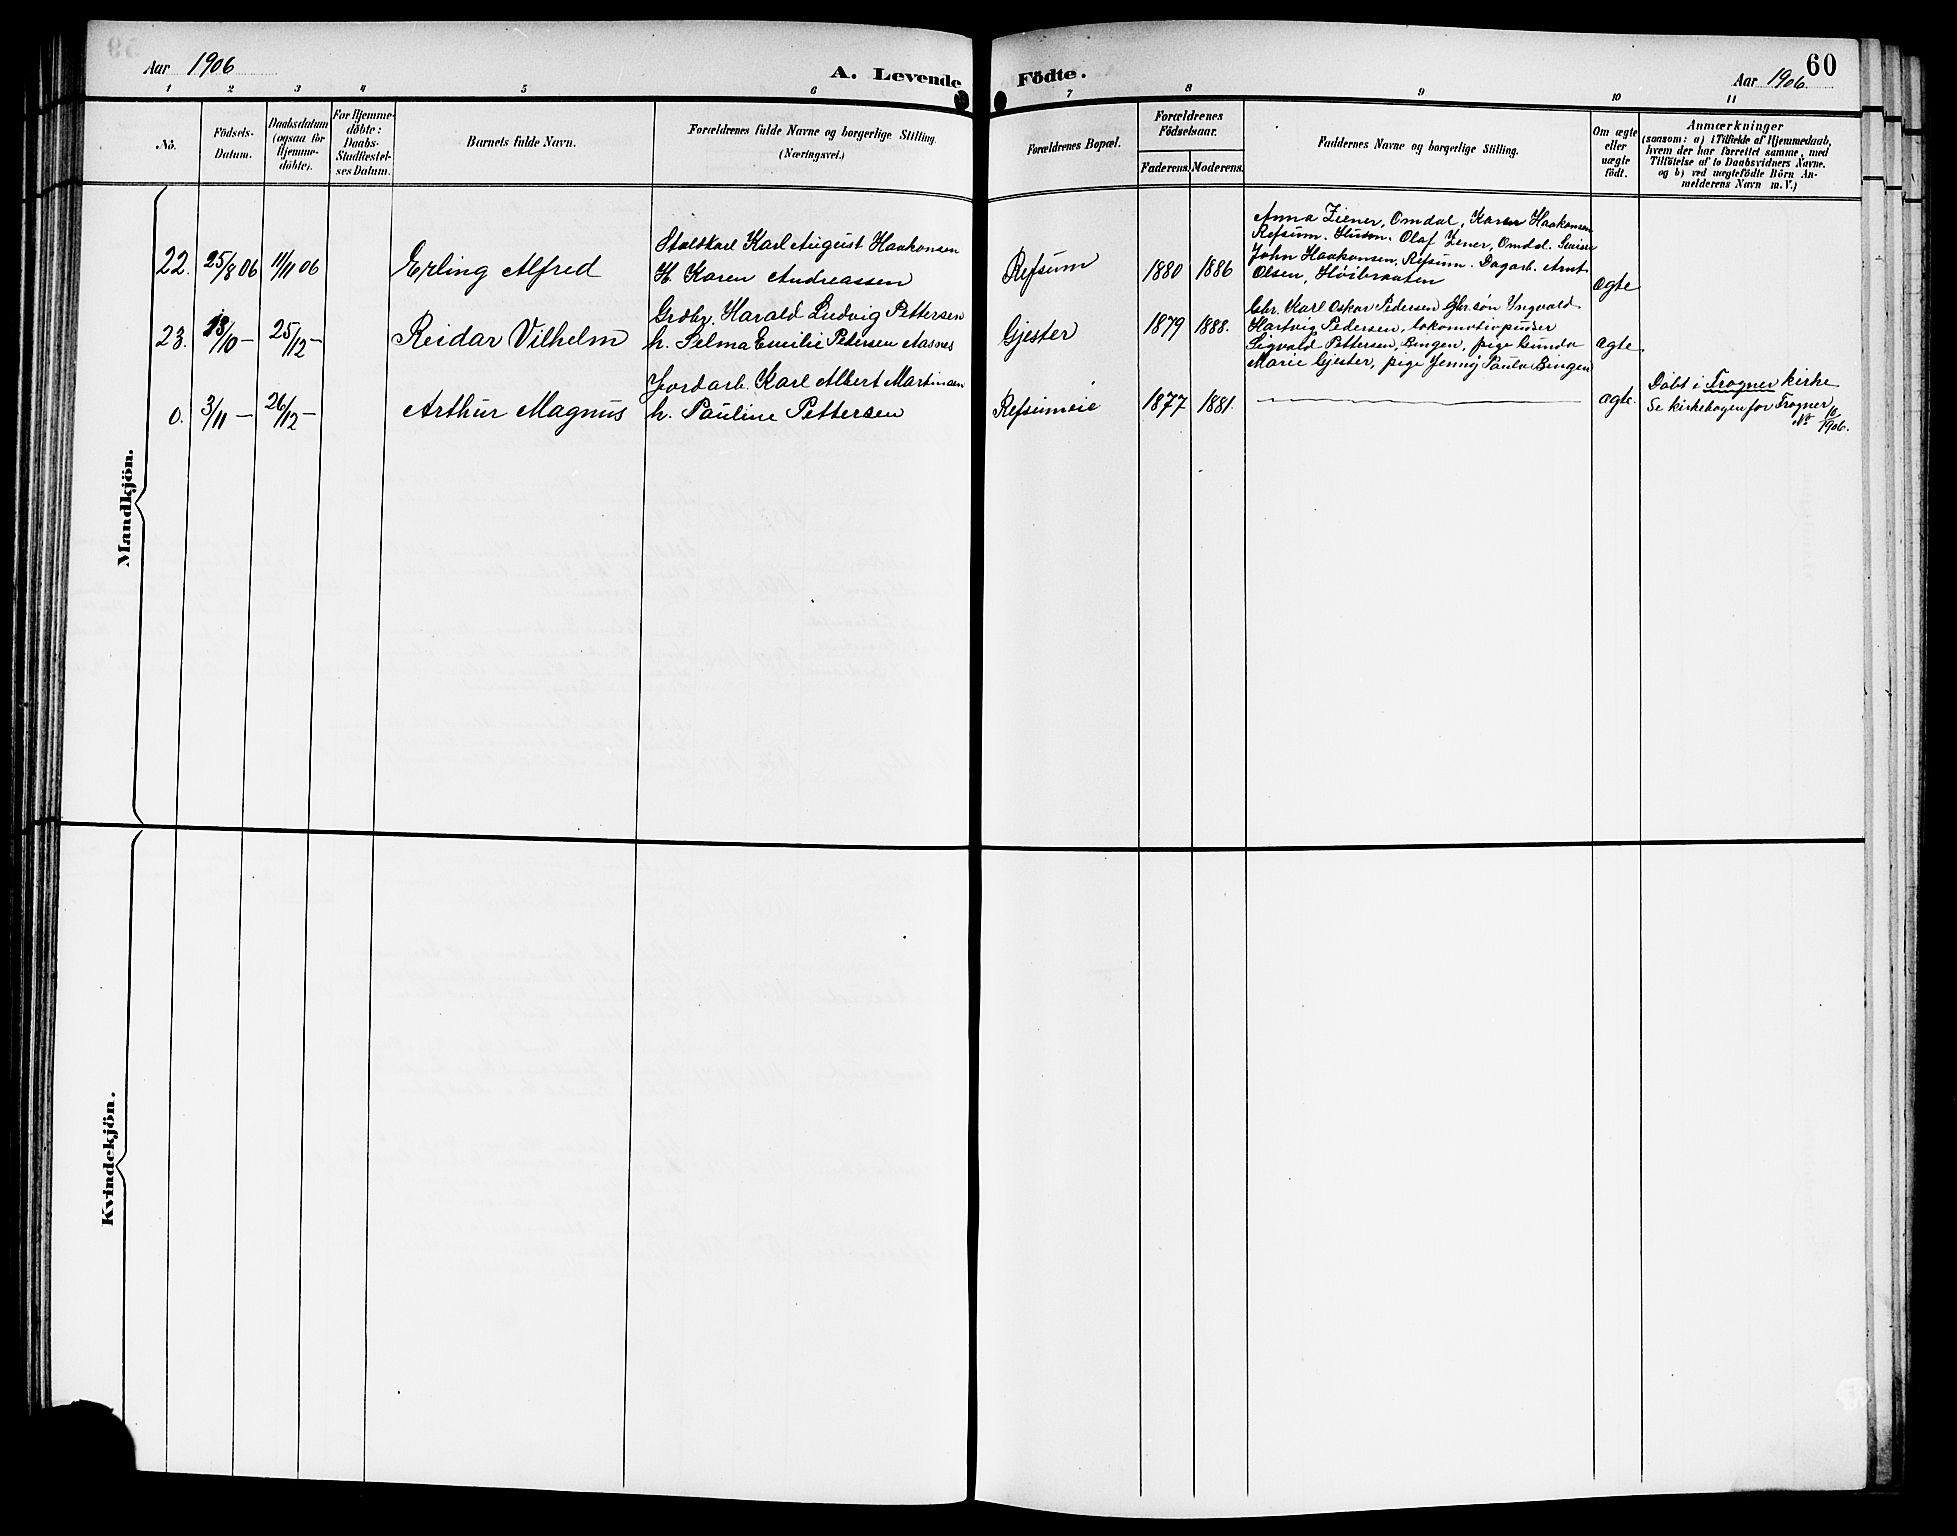 Aar 1906
A. Levende Födte.
60
Aar 1906.
1 2 3 4 5 6 7 8 9 10 11
No.
Födsels-
Datum.
Daabsdatum
(ogsaa for
Hjemme-
döbte).
For Hjemme-
döbte:
Daabs-
Stadfæstel-
ses Datum.
Barnets fulde Navn.
Forældrenes fulde Navne og borgerlige Stilling.
(Næringsvei.)
Forældrenes Bopæl.
Forældrenes
Födselsaar.
Faderens. Moderens.
Faddernes Navne og borgerlige Stilling.
Om ægte
eller
uægte
födt.
Anmærkninger
(saasom: a) i Tilfælde af Hjemmedaab,
hvem der har forrettet samme, med
Tilföielse af to Daabsvidners Navne,
og b) ved uægtefödte Börn An-
melderens Navn m. V.)
Mandkjön.
22. 25/8 06 11/11 06 Erling Alfred
Staldkarl Karl August Haakonsen
H. Karen Andreassen
Refsum 1880 1886
Anna Ziener, Omdal, Karen Haakonsen
Refsum. Olaf Zener, Omdal.
John Haakonsen, Refsum. Dagarb. Arnt
Olsen, Höibraaten
ægte
23. 18/10 - 25/12 - Reidar Vilhelm
Grdbr. Harald Ludvig Pettersen
h. Selma Emilie Petersen Aasnes
Gjester 1879 1888.
Gbr. Karl Oskar Pedersen Gbr.søn Yngvald
Hartvig Pedersen, lokomotivpudser
Sigvald Pettersen, Bingen, pige Gunda
Marie Gjester, pige Jenny Paula Bingen
ægte
0. 3/11 - 26/12 - Arthur Magnus
Jordarb. Karl Albert Martinsen
h. Pauline Pettersen
Refsumeie 1877 1881.
ægte.
Döbt i Frogner kirke
Se kirkebogen for Frogner
No 18/1906.
Kvindekjön.